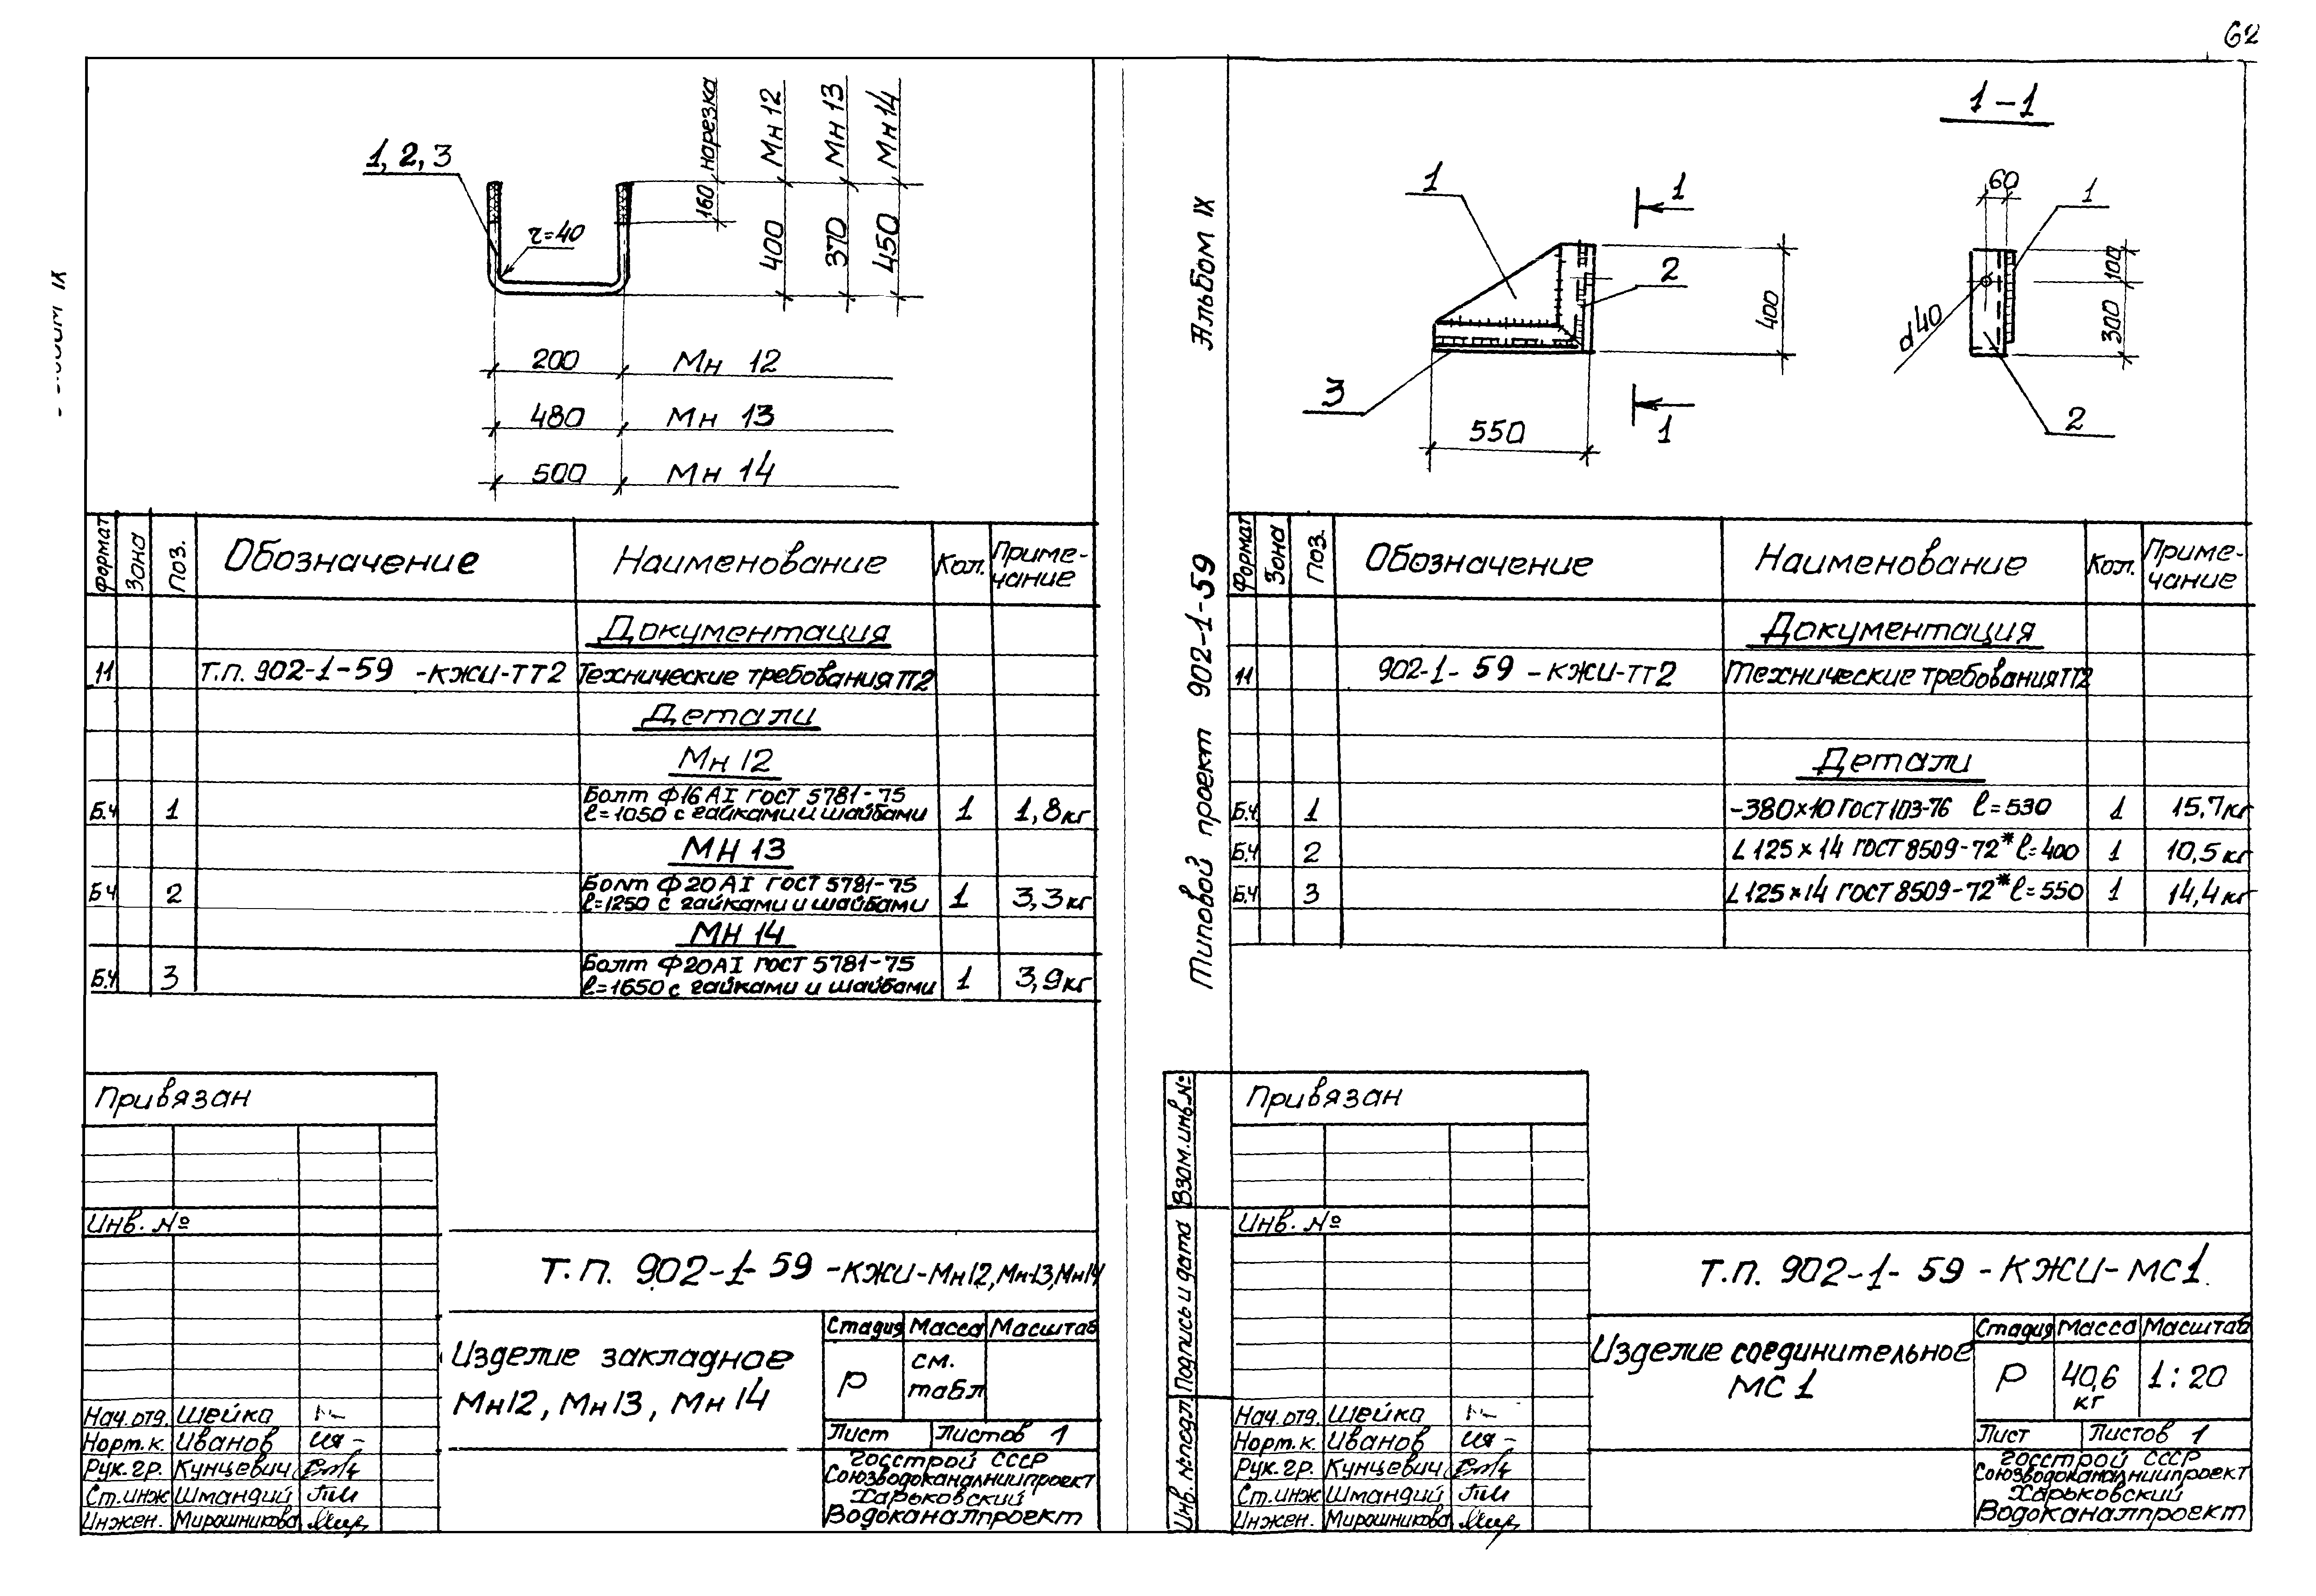 62
1, 2, 3
r=40
160 нарезка
400 Мн 12
370 Мн 13
450 Мн 14
200 Мн 12
480 Мн 13
500 Мн 14
Формат Зона Поз. Обозначение Наименование Кол. Приме-
чание
Документация
11 Т.П. 902-1-59 -КЖИ-ТТ2 Технические требования ТТ2
Детали
Мн 12
Б.Ч 1 Болт Ф16АI ГОСТ 5781-75
ℓ=1050 с гайками и шайбами 1 1,8кг
МН 13
БЧ 2 Болт Ф20АI ГОСТ 5781-75
ℓ=1250 с гайками и шайбами 1 3,3кг
МН 14
Б.Ч 3 Болт Ф20АI ГОСТ 5781-75
ℓ=1650 с гайками и шайбами 1 3,9кг
Привязан
Инв. №
Т.П. 902-1-59 -КЖИ-Мн12,Мн13,Мн14
Изделие закладное
Мн12, Мн13, Мн14
Стадия Масса Масштаб
Р см.
табл
Лист Листов 1
Госстрой СССР
Союзводоканалниипроект
Харьковский
Водоканалпроект
Нач.отд. Шейко
Норт.к. Иванов
Рук.гр. Кунцевич
Ст.инж Шмандий
Инжен. Мирошникова
Альбом IX
Типовой проект 902-1-59
1-1
1
1
2
3
1
400
550
60
1
100
300
d40
2
Формат Зона Поз. Обозначение Наименование Кол. Приме-
чание
Документация
11 902-1-59 -КЖИ-ТТ2 Технические требования ТТ2
Детали
Б.Ч. 1 -380×10 ГОСТ 103-76 ℓ=530 1 15,7кг
Б.Ч 2 L 125×14 ГОСТ 8509-72* ℓ=400 1 10,5кг
Б.Ч 3 L 125×14 ГОСТ 8509-72* ℓ=550 1 14,4кг
Взам.инв.№
Подпись и дата
Инв. №подл.
Привязан
Инв. №
Т.П. 902-1-59 -КЖИ-МС1.
Изделие соединительное
МС 1
Стадия Масса Масштаб
Р 40,6
кг 1:20
Лист Листов 1
Госстрой СССР
Союзводоканалниипроект
Харьковский
Водоканалпроект
Нач.отд. Шейко
Норт.к. Иванов
Рук.гр. Кунцевич
Ст.инж Шмандий
Инжен. Мирошникова